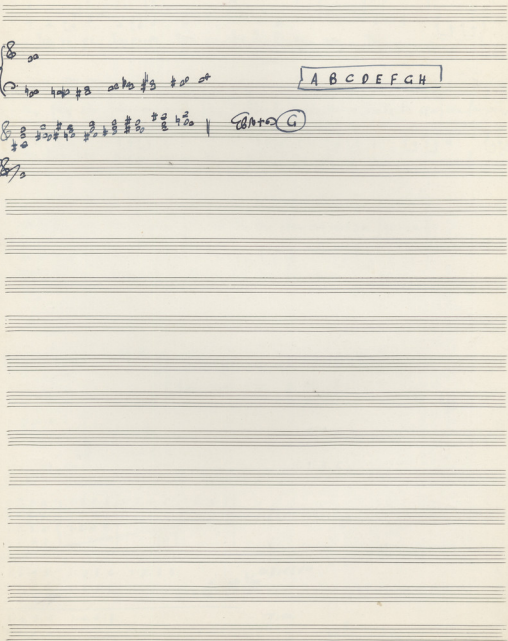 A B C D E F G H
G